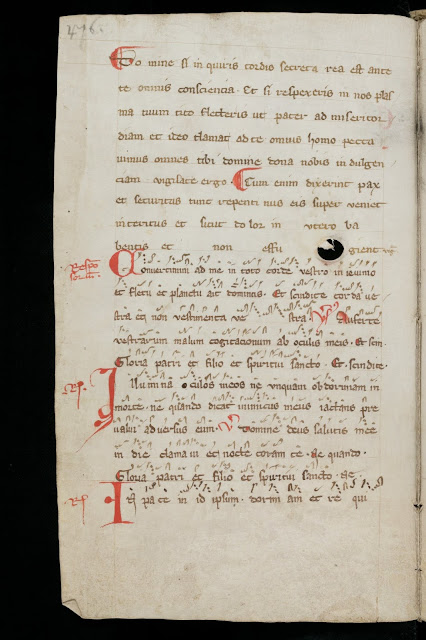 476.
Do mine si inquiris cordis secreta rea est ante
te omnis consciencia. Et si respexeris in nos plas
ma tuum cito flecteris ut pater ad misericor
diam et ideo clamat ad te omnis homo pecca
uimus omnes tibi domine dona nobis indulgen
ciam vigilate ergo. Cum enim dixerint pax
et securitus tunc repenti nus eis super veniet
interitus et sicut dolor in utero ha
bentis et non effu gient
Conuertimini ad me in toto corde vestro in ieiunio
et fletu et planctu ait dominus. Et scindite corda ve
stra et non vestimenta ve stra Auferte
vestrarum malum cogitacionum ab oculis meis. Et scin
Gloria patri et filio et spiritui sancto. Et. scindite.
Illumina oculos meos ne unquam obdormiam in
morte. ne quando dicat inimicus meus iactans pre
ualui aduersus eum. Domine deus salutis mee
in die clamaui et nocte coram te. Ne quando.
Gloria patri et filio et spiritui sancto. Ne
In pa ce in id ipsum. dorm iam et re qui